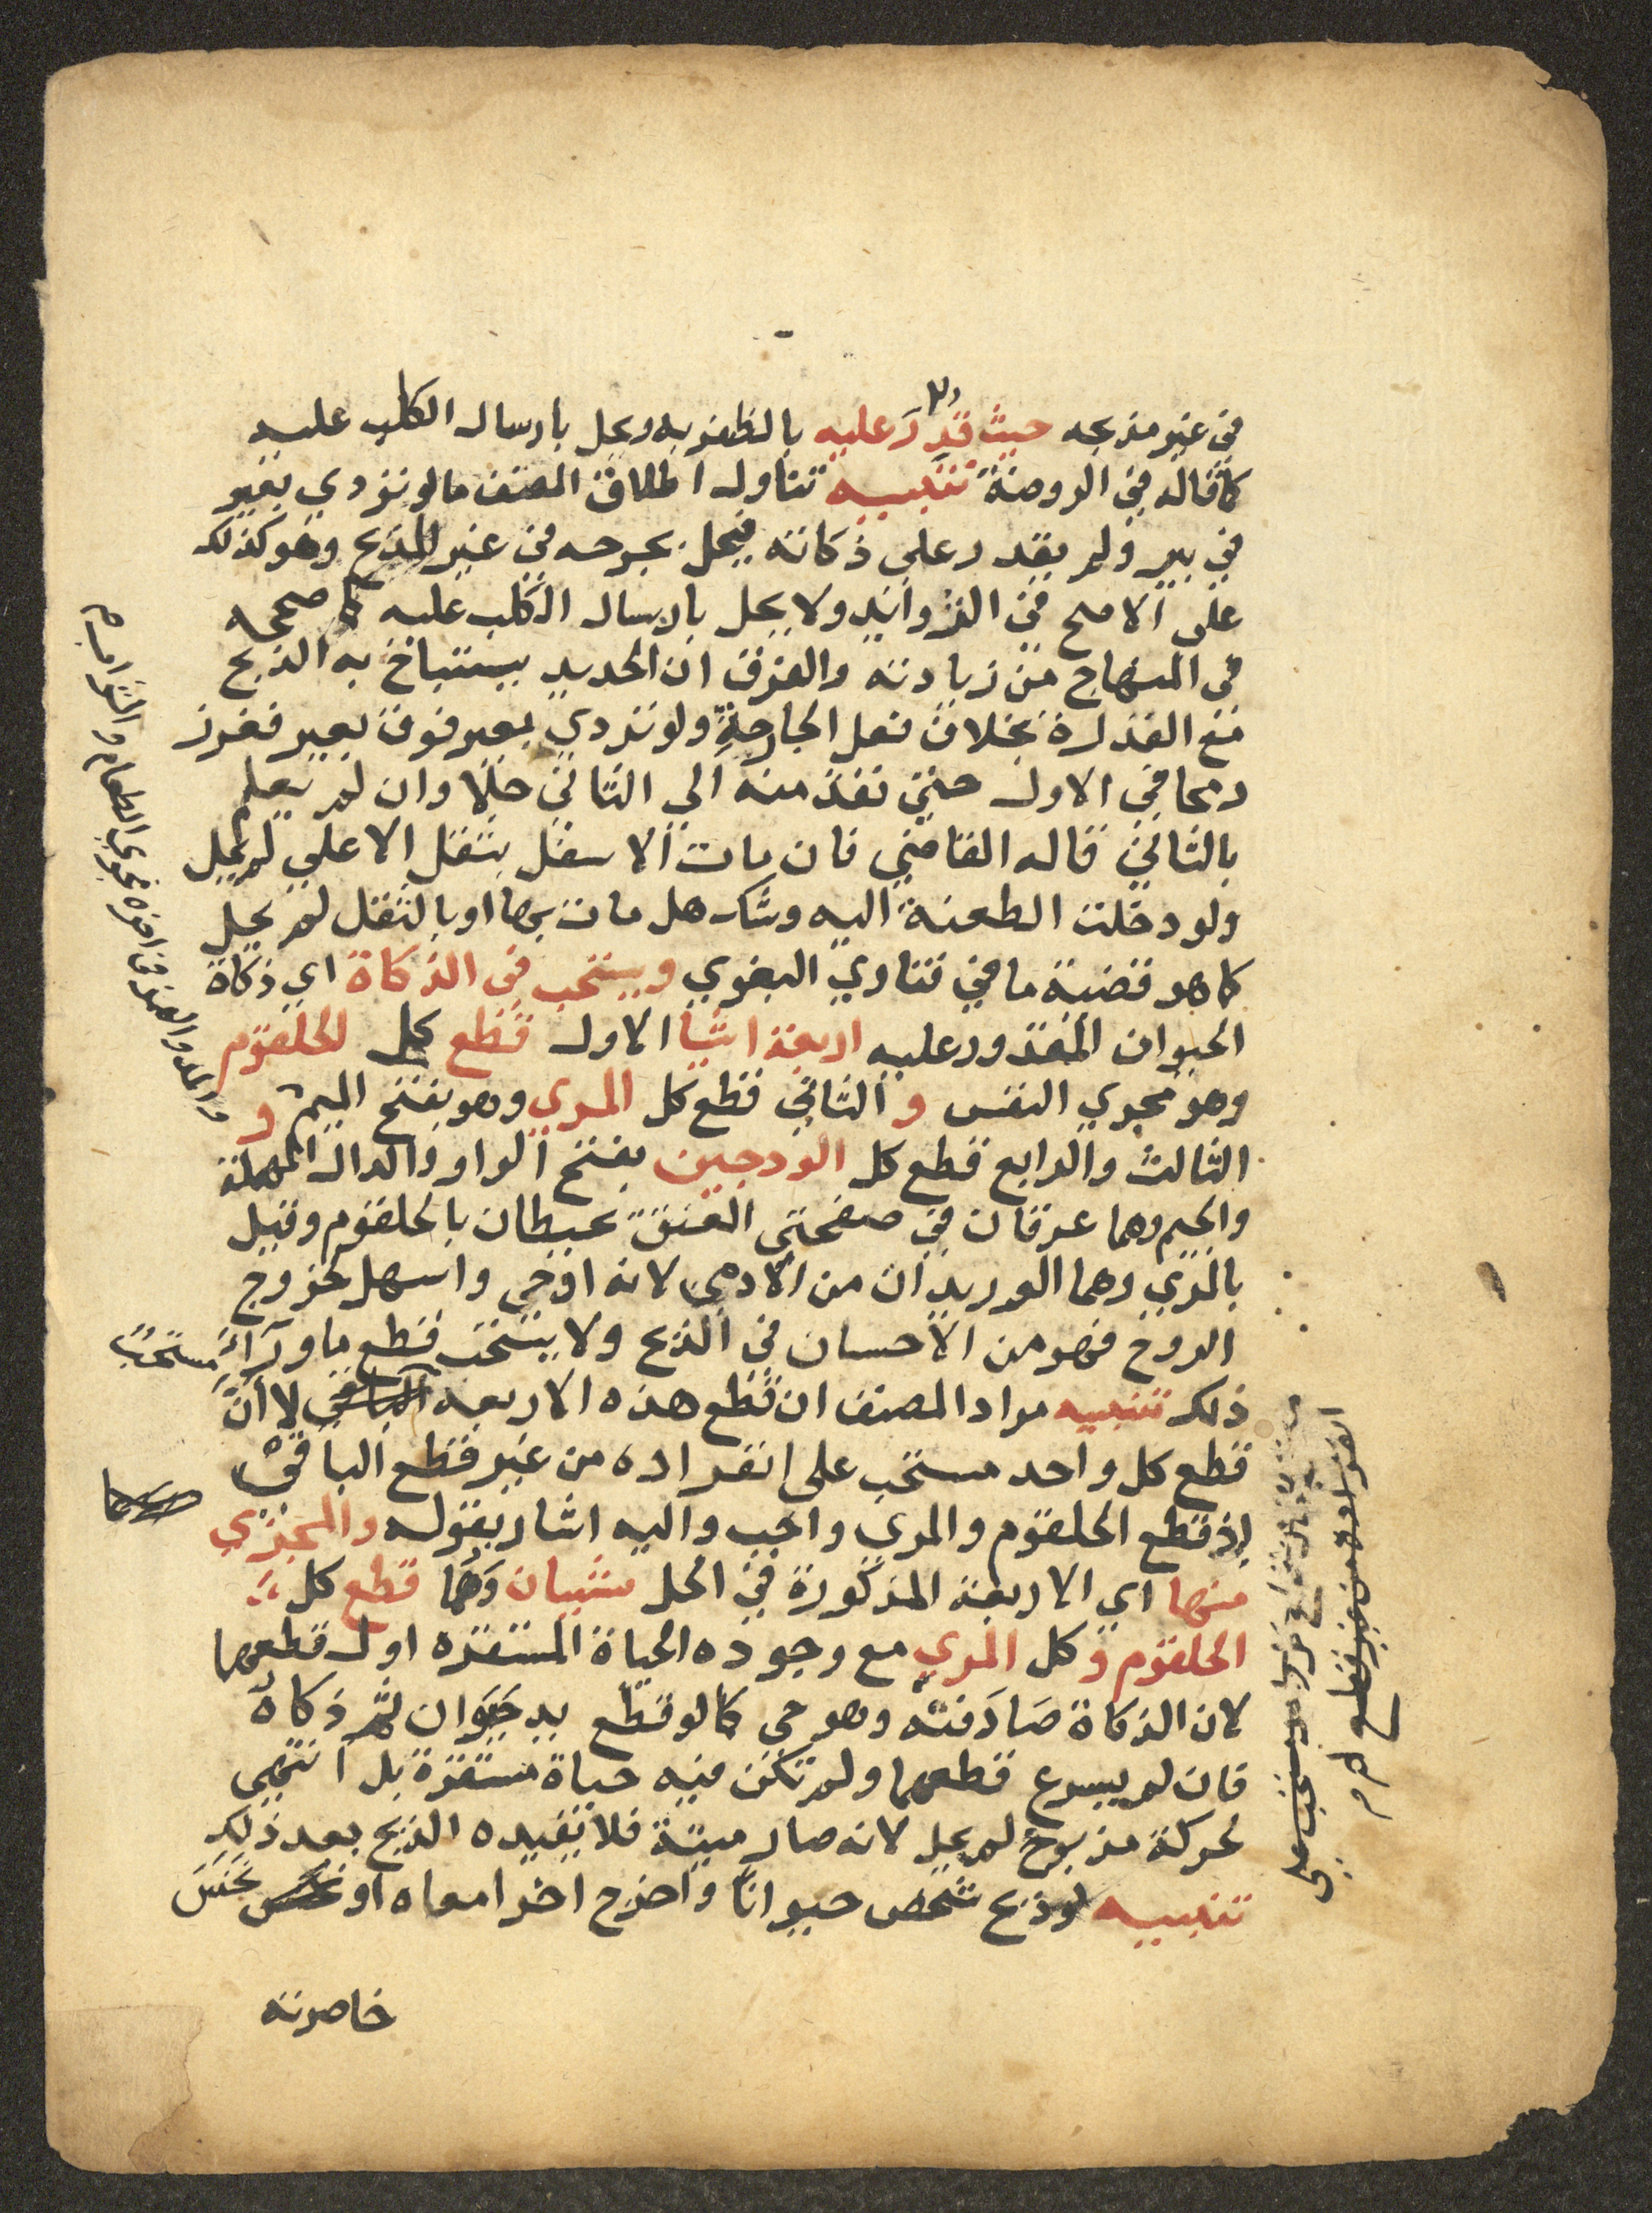 في غير مذبحه حيث قدر عليه بالظفر به ويحل بارسال الكلب عليه
كما قاله في الروضة تنبيه تناول اطلاق المصنف ما لو تردي بعير
في بير ولم يقدر على ذكاته فيحل بجرحه في غير المذبح وهو كذلك
على الاصح في الزوايد ولا يحل بارسال الكلب عليه كما صححه
في المنهاج من زيادته والفرق ان الحديد يستباح به الذبح
مع القدرة بخلاف فعل الجارحة ولو تردي بعير فوق بعير فغرز
رمحا في الاول حتي نفذ منه الي الثاني حلا وان لم يعلم
بالثاني قاله القاضي فان مات الاسفل بثقل الاعلي لم يحل
ولو دخلت الطعنة اليه وشك هل مات بها او بالثقل لم يحل
كما هو قضية ما في فتاوي البغوي ويستحب في الذكاة اي ذكاة
الحيوان المقدور عليه اربعة اشيا الاول قطع كل الحلقوم
وهو مجري النفس و الثاني قطع كل المري وهو بفتح الميم و
الثالث والرابع قطع كل الودجين بفتح الواو والدال المهملة
والجيم وهما عرقان في صفحتي العنق محيطان بالحلقوم وقيل
بالمري وهما الوريدان من الادمي لانه اوحي واسهل لخروج
الروح فهو من الاحسان في الذبح ولا يستحب قطع ما ورآء
ذلك تنبيه مراد المصنف ان قطع هذه الاربعة مستحب لا ان
قطع كل واحد مستحب على انفراده من غير قطع الباقي
اذ قطع الحلقوم والمري واجب واليه اشار بقوله والمجزي
منها اي الاربعة المذكورة في الحل شيبان وهما قطع كل
الحلقوم و كل المري مع وجوده الحياة المستقره اول قطعهما
لان الذكاة صادفته وهو حي كما لو قطع يد حيوان ثم ذكاه
فان لم يسرع قطعهما ولم تكن فيه حياة مستقرة بل انتهي
لحركة مذبوح لم يحل لانه صار ميتة فلا يفيده الذبح بعد ذلك
تنبيه لو ذبح شخص حيوانا واخرج اخر امعاه او نخس نخس
خاصرته
والمد والهمز في اخره مجري الطعام والشراب